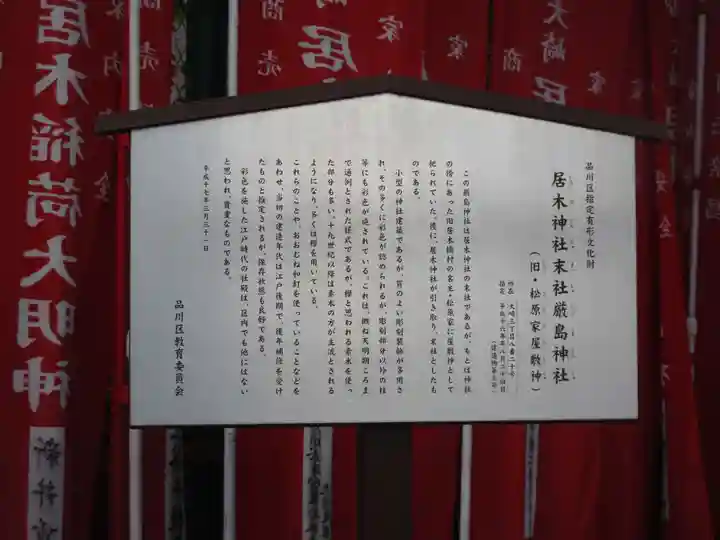 品川区指定有形文化財
居木神社末社厳島神社
(旧・松原家屋敷神)
所在 大崎三丁目八番二十号
指定 平成十六年十八月二十四日
(建造物第七号)
この厳島神社は居木神社の末社であるが、もとは神社
の傍にあった旧居木橋村の名主・松原家に屋敷神として
祀られていた。後に、居木神社が引き取り、末社としたも
のである。
小型の神社建築であるが、質のよい彫刻装飾が多用さ
れ、その多くに彩色が認められるが、彫刻部分以外の柱
等にも彩色が施されている。これは、概ね天明期ころま
で通例とされた様式であるが、欅と思われる素木を使っ
た部分も多い。十九世紀以降は素木の方が主流とされる
ようになり、多くは欅を用いている。
これらのことや、おおむね和釘を使っていることなどを
あわせ、当初の建造年代は江戸後期で、後年補修を受け
たものと推定されるが、保存状態も良好である。
彩色を施した江戸時代の社殿は、区内でも他にはない
と思われ、貴重なものである。
平成十七年三月三十一日
品川区教育委員会
居木稲荷大明神
新井
大崎
居
家
商売